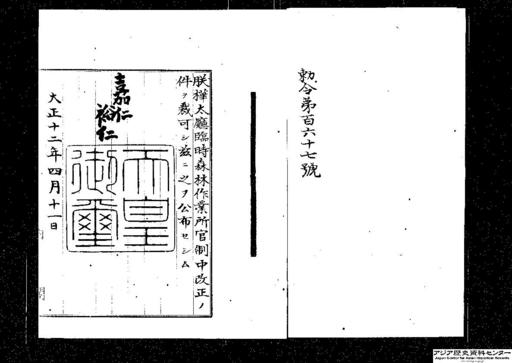 勅令第百六十七號
朕樺太廳臨時森林作業所官制中改正ノ
件ヲ裁可シ茲ニ之ヲ公布セシム
嘉仁
裕仁
天皇
御璽
大正十二年四月十一日
アジア歴史資料センター
Japan Center for Asian Historical Records